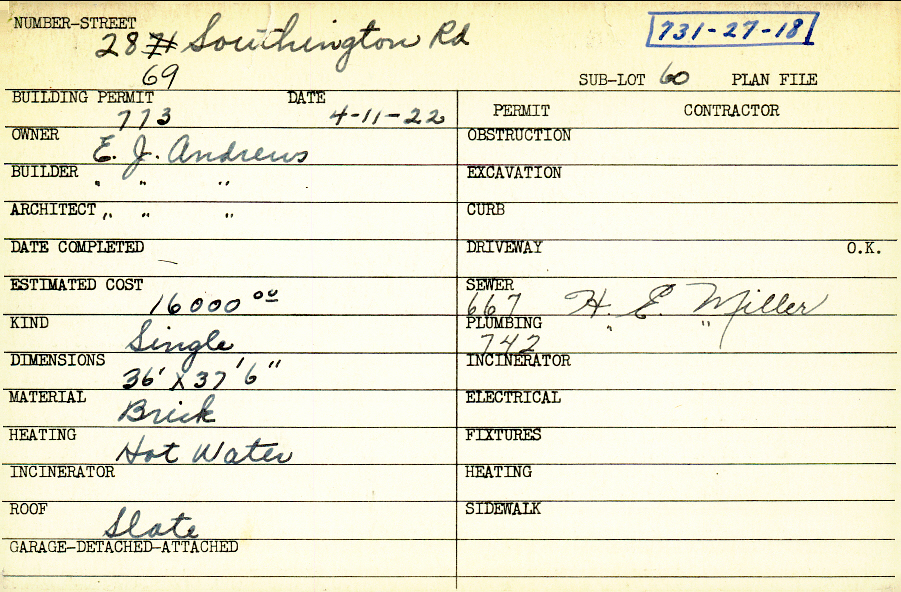 NUMBER-STREET
28 Southington Rd
69
731-27-18
SUB-LOT 60 PLAN FILE
BUILDING PERMIT DATE
773 4-11-22
PERMIT CONTRACTOR
OWNER
E. J. Andrews
OBSTRUCTION
BUILDER
" " "
EXCAVATION
ARCHITECT " " "
CURB
DATE COMPLETED
DRIVEWAY O.K.
ESTIMATED COST
16000 00
SEWER
667 H. E. Miller
KIND
Single
PLUMBING " "
742
DIMENSIONS
36' X 37' 6"
INCINERATOR
MATERIAL
Brick
ELECTRICAL
HEATING
Hot Water
FIXTURES
INCINERATOR
HEATING
ROOF
Slate
SIDEWALK
GARAGE-DETACHED-ATTACHED